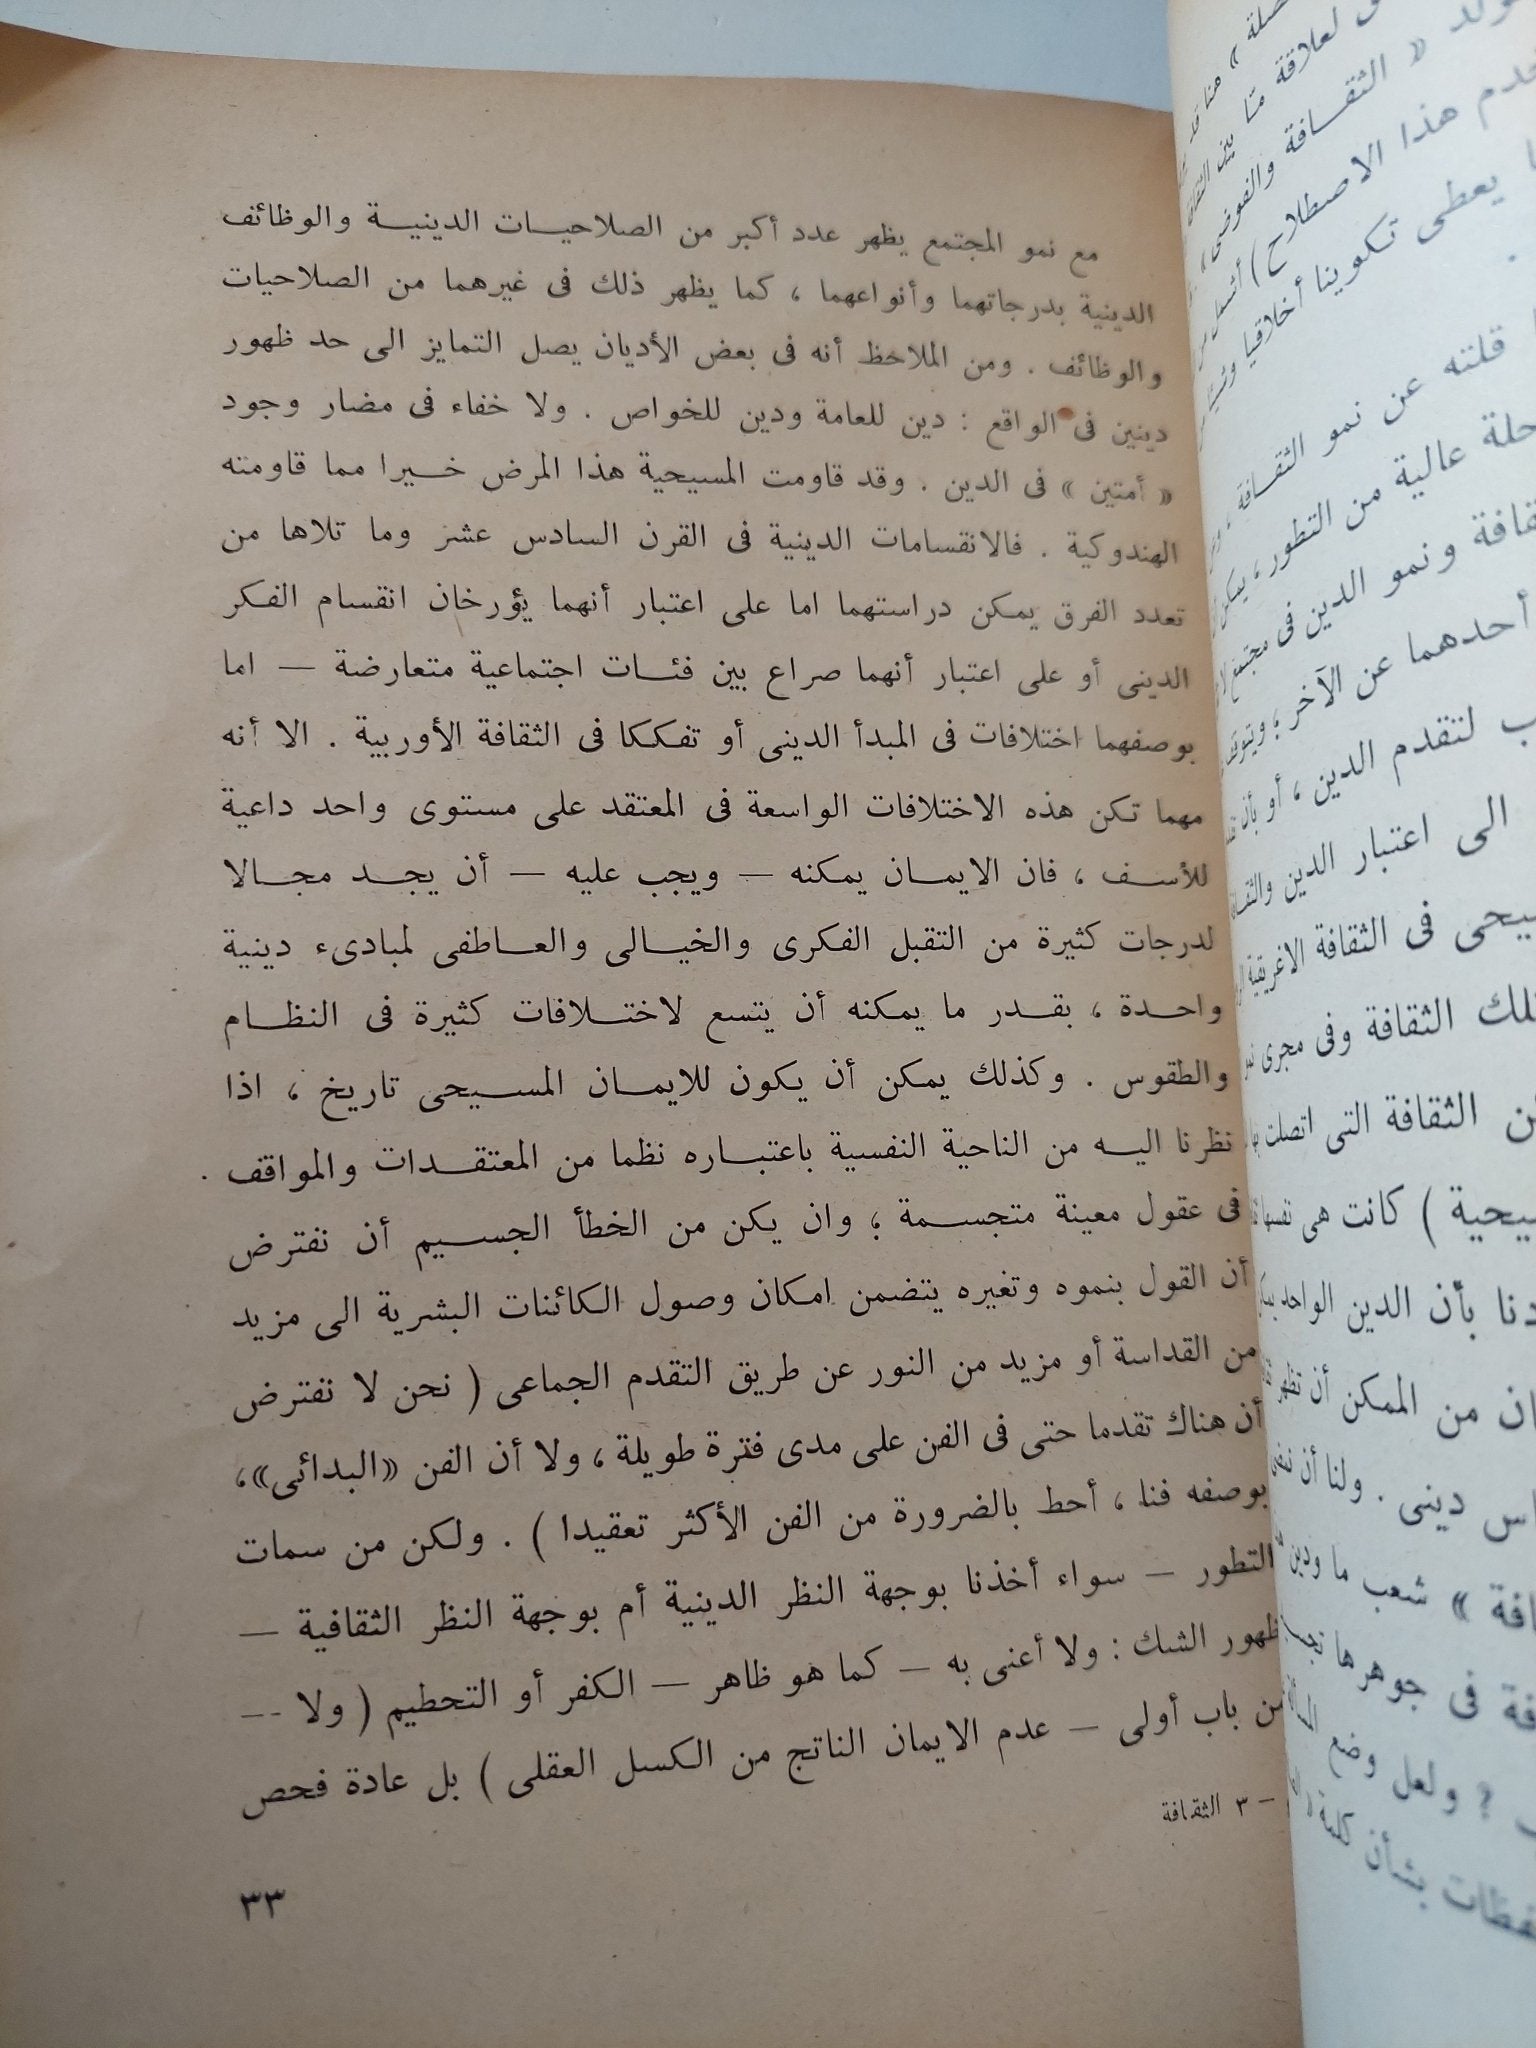 مع نمو المجتمع يظهر عدد أكبر من الصلاحيات الدينية والوظائف
الدينية بدرجاتهما وأنواعهما ، كما يظهر ذلك فى غيرهما من الصلاحيات
والوظائف . ومن الملاحظ أنه فى بعض الأديان يصل التمايز الى حد ظهور
دينين فى الواقع : دين للعامة ودين للخواص . ولا خفاء فى مضار وجود
« أمتين » فى الدين . وقد قاومت المسيحية هذا المرض خيرا مما قاومته
الهندوكية . فالانقسامات الدينية فى القرن السادس عشر وما تلاها من
تعدد الفرق يمكن دراستهما اما على اعتبار أنهما يؤرخان انقسام الفكر
الدينى أو على اعتبار أنهما صراع بين فئات اجتماعية متعارضة – اما
بوصفهما اختلافات فى المبدأ الدينى أو تفككا فى الثقافة الأوربية . الا أنه
مهما تكن هذه الاختلافات الواسعة فى المعتقد على مستوى واحد داعية
للأسف ، فان الايمان يمكنه – ويجب عليه – أن يجد مجالا
لدرجات كثيرة من التقبل الفكرى والخيالى والعاطفى لمبادىء دينية
واحدة ، بقدر ما يمكنه أن يتسع لاختلافات كثيرة فى النظام
والطقوس . وكذلك يمكن أن يكون للايمان المسيحى تاريخ ، اذا
نظرنا اليه من الناحية النفسية باعتباره نظما من المعتقدات والمواقف
فى عقول معينة متجسمة ؛ وان يكن من الخطأ الجسيم أن نفترض
أن القول بنموه وتغيره يتضمن امكان وصول الكائنات البشرية الى مزيد
من القداسة أو مزيد من النور عن طريق التقدم الجماعى ( نحن لا نفترض
أن هناك تقدما حتى فى الفن على مدى فترة طويلة ، ولا أن الفن «البدائى»،
بوصفه فنا ، أحط بالضرورة من الفن الأكثر تعقيدا ) . ولكن من سمات
التطور – سواء أخذنا بوجهة النظر الدينية أم بوجهة النظر الثقافية –
ظهور الشك : ولا أعنى به – كما هو ظاهر – الكفر أو التحطيم ( ولا --
من باب أولى – عدم الايمان الناتج من الكسل العقلى ) بل عادة فحص
– ٣ الثقافة
٣٣
« هنا قد
لعلاقة ما بين
« الثقافة والفوضى»
هذا الاصطلاح) أشمل
يعطى تكوينا أخلاقيا
قلته عن نمو الثقافة
عالية من التطور ،
ونمو الدين فى مجتمع
أحدهما عن الآخر ؛
لتقدم الدين ، أو بأن
الى اعتبار الدين
فى الثقافة الاغريقية
الثقافة وفى مجرى
الثقافة التى اتصلت
) كانت هى نفسها
بأن الدين الواحد
من الممكن أن تظهر
دينى . ولنا أن
» شعب ما ودين
فى جوهرها
؟ ولعل وضع
بشأن كلمة